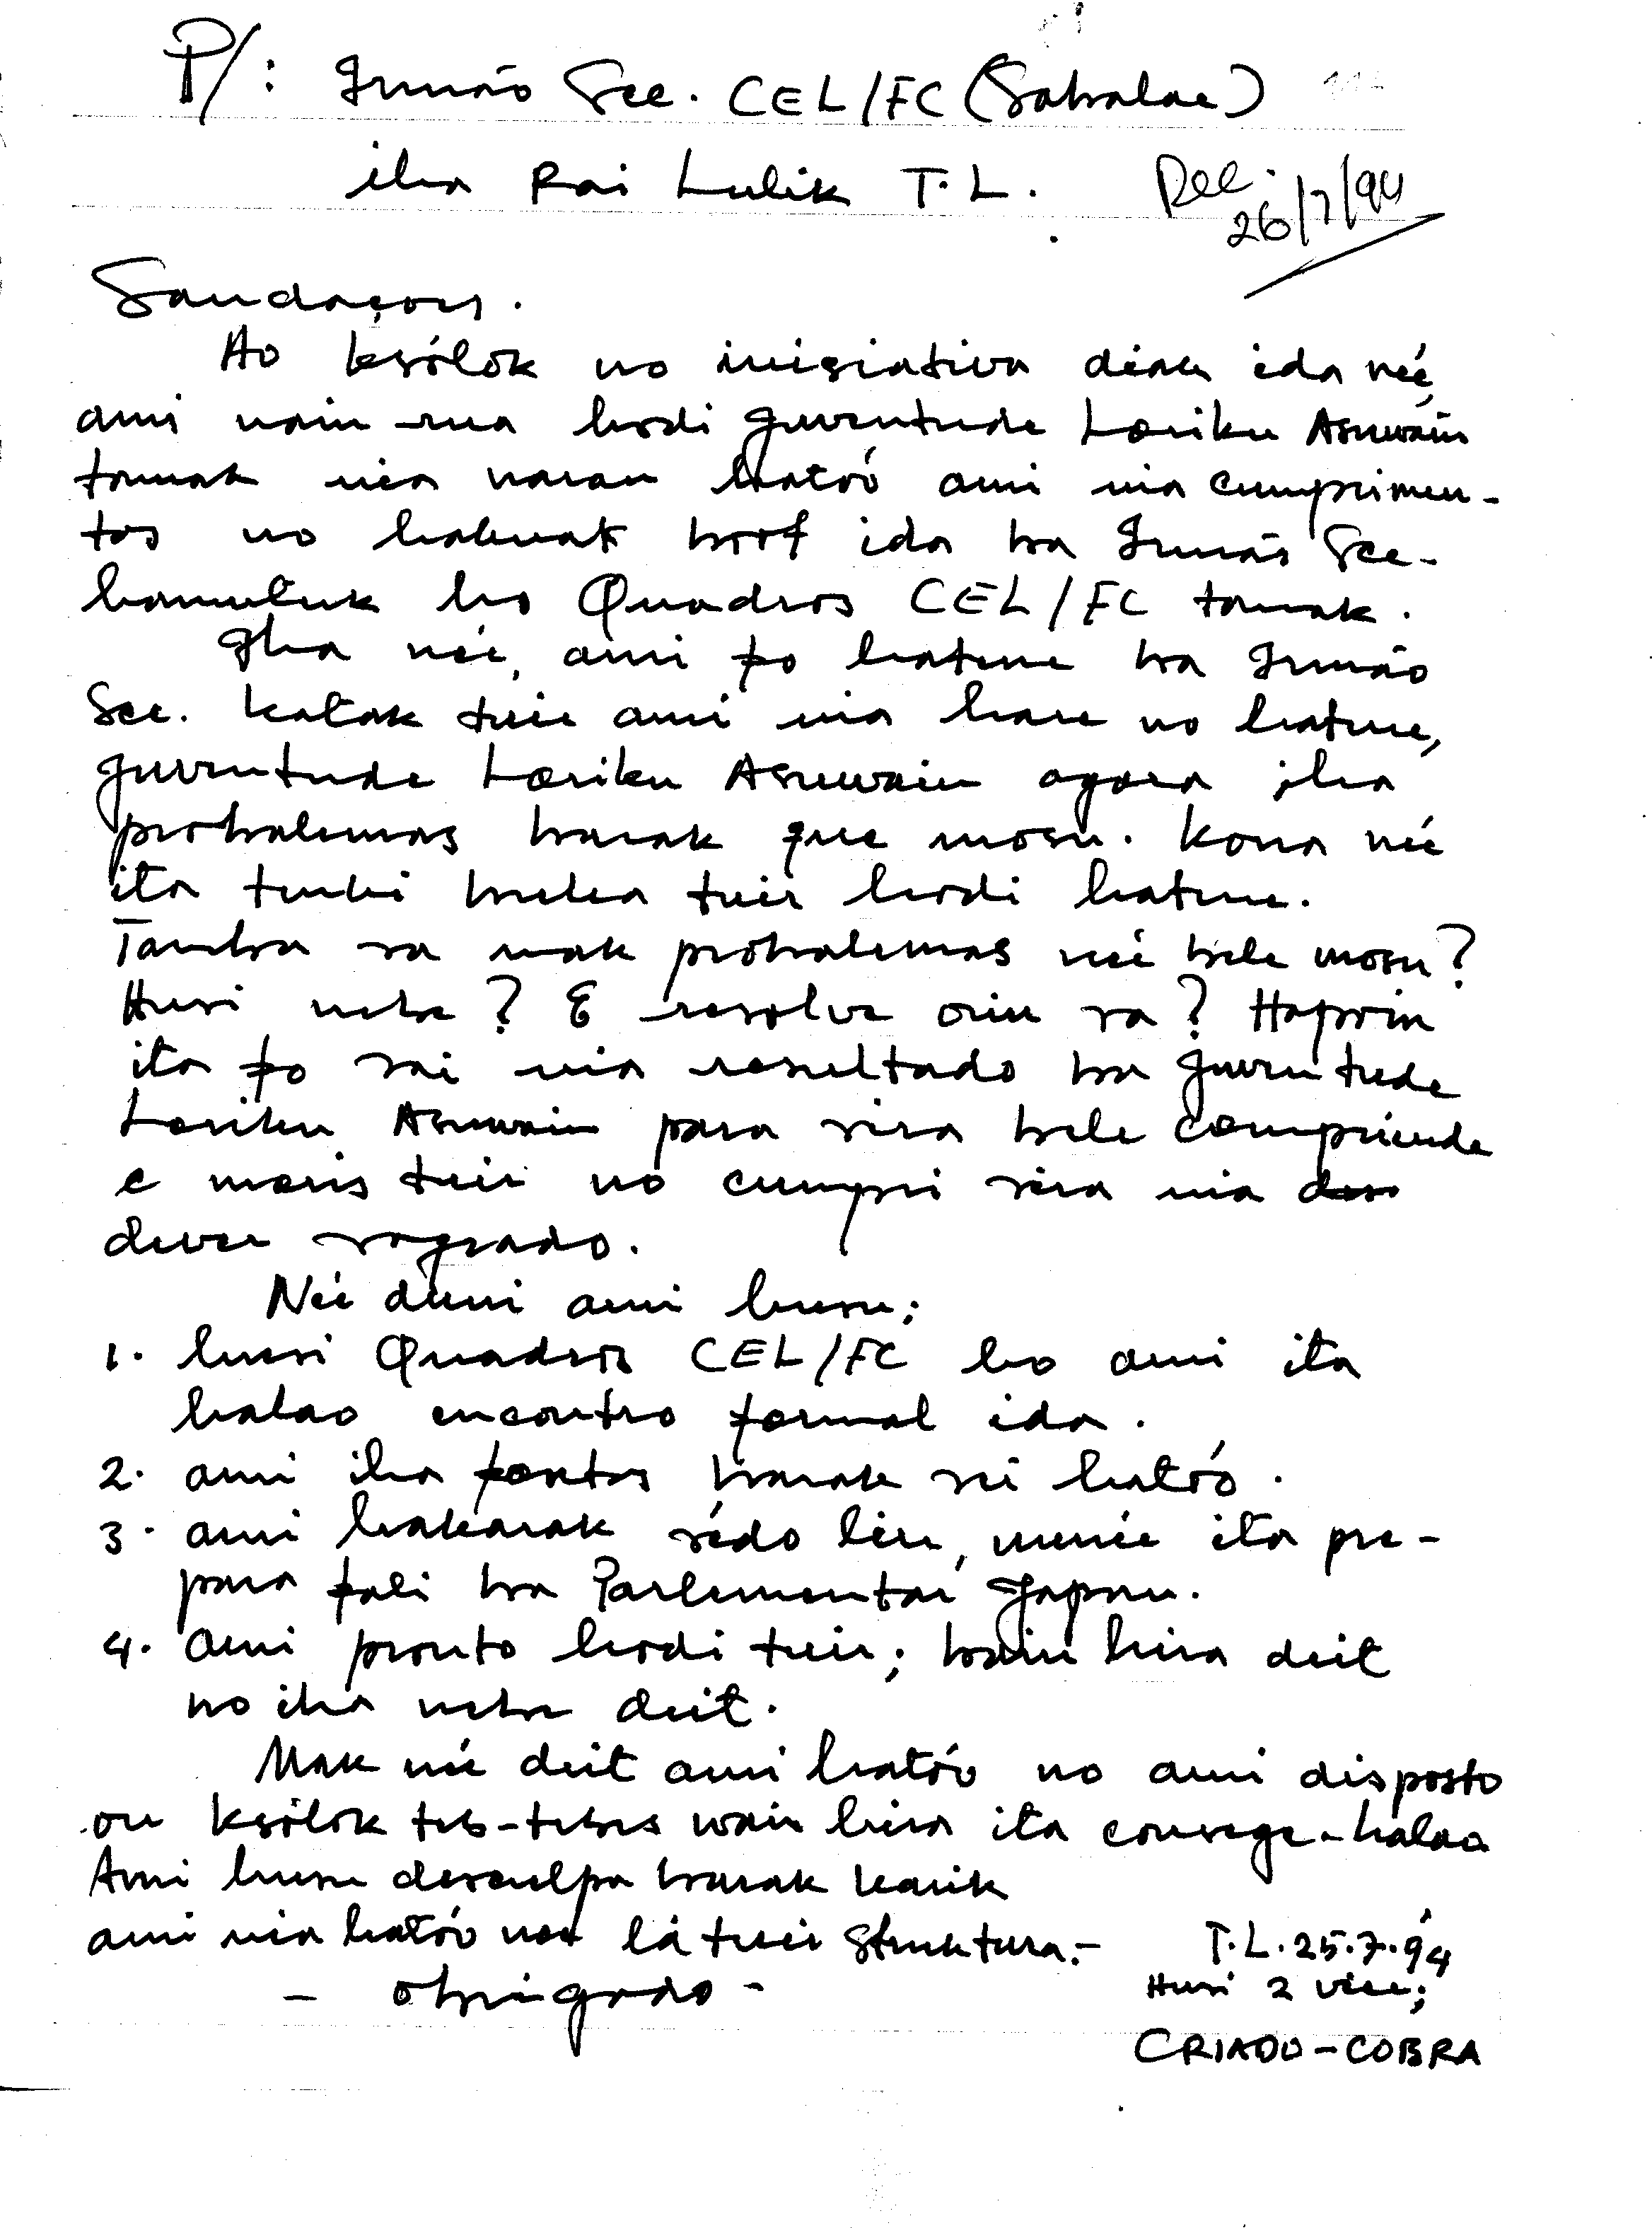 P/: Irmão Sec. CEL/FC (Sabalae)
iha Rai Lulik T.L.
Rec. 26/7/94
Saudaçois.
Ho ksólok no inisiativa diak ida neé,
ami nain-rua hodi Juventude Loriku Asuwain
tomak nia naran hatóó ami nia cumprimen-
tos no hakuak boot ida ba Irmão Sec.
hamutuk ho Quadros CEL/FC tomak.
Iha neé, ami fo hatene ba Irmão
Sec. katak tuir ami nia hare no hatene,
Juventude Loriku Asuwain agora iha
probalemas barak que mosu. Kona neé
ita tenki buka tuir hodi hatene.
Tamba sa mak probalemas neé bele mosu?
Husi nebe? E resolve oin sa? Hafoin
ita fo sai nia resultado ba Juventude
Loriku Asuwain para sira bele compriende
e mais tuir no cumpri sira nia
dever sagrado.
Neé duni ami husu;
1. husi Quadros CEL/FC ho ami ita
halao encontro formal ida.
2. ami iha pontos barak sei hatóó.
3. ami hakarak sédo liu, muneé ita pre-
para fali ba Parlementar Japau.
4. Ami pronto hodi tuir; bain hira deit
no iha nebe deit.
Mak neé deit ami hatóo no ami disposto
ou ksólok teb-tebes wain hira ita consege halao
Ami husu desculpa barak karik
ami nia hatóo neé lá tuir struktura.-
- obrigado -
T.L. 25.7.94
Husi 2 vice;
CRIADO-COBRA